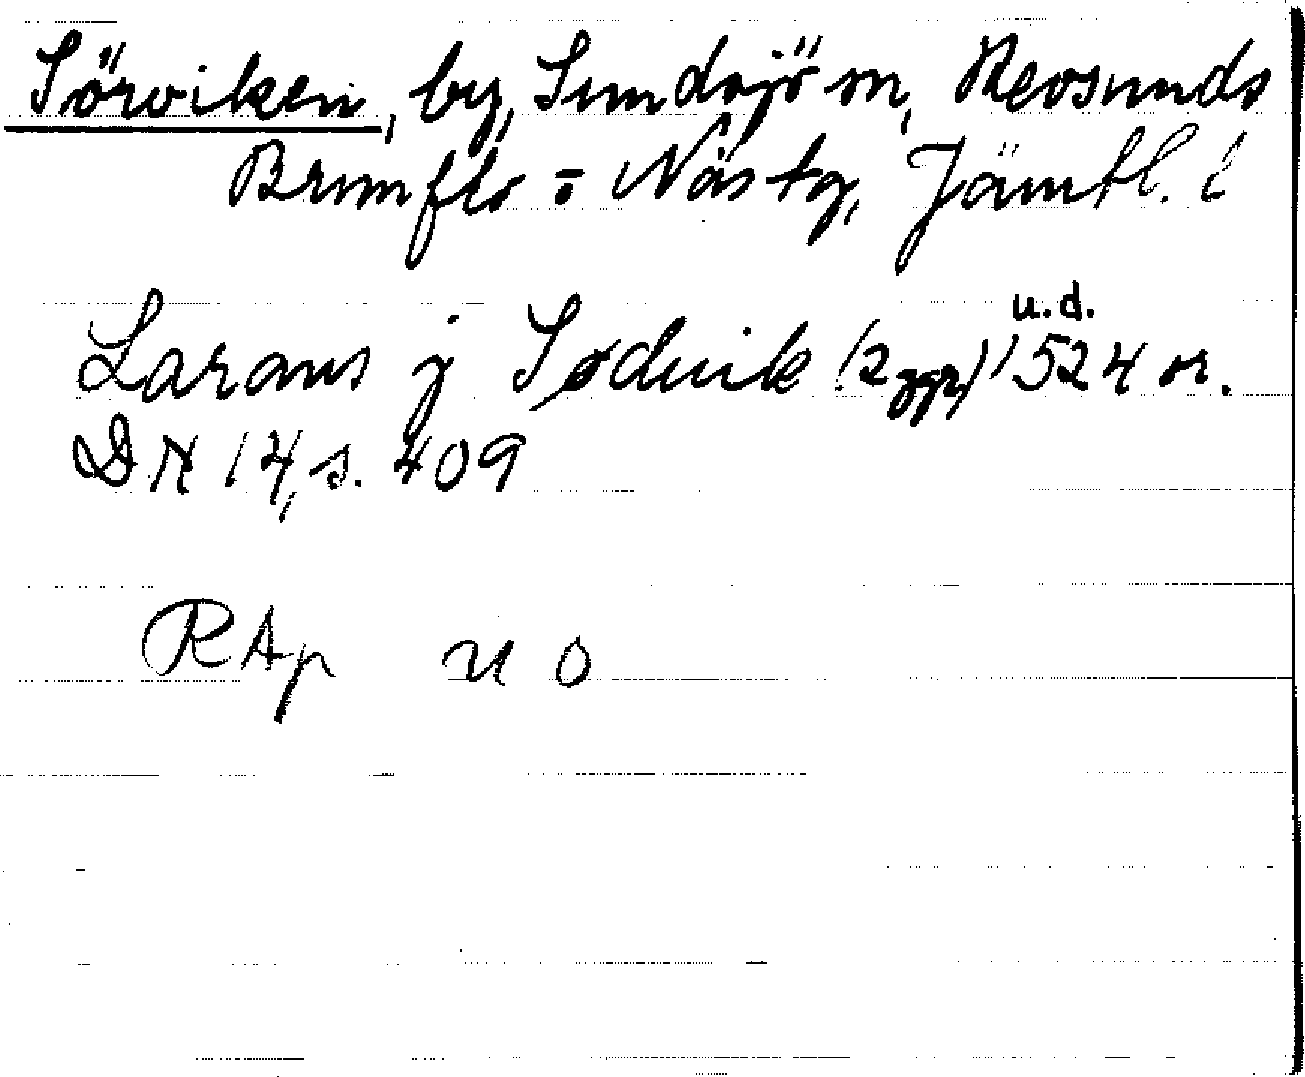 Sörviken, by, Sundsjö sn, Revsunds
Brunflo o Näs tg, Jämtl. l
u.d.
Larans j Sødwik (2 ggr) 1524 or.
DN 14, s. 409
RAp n o